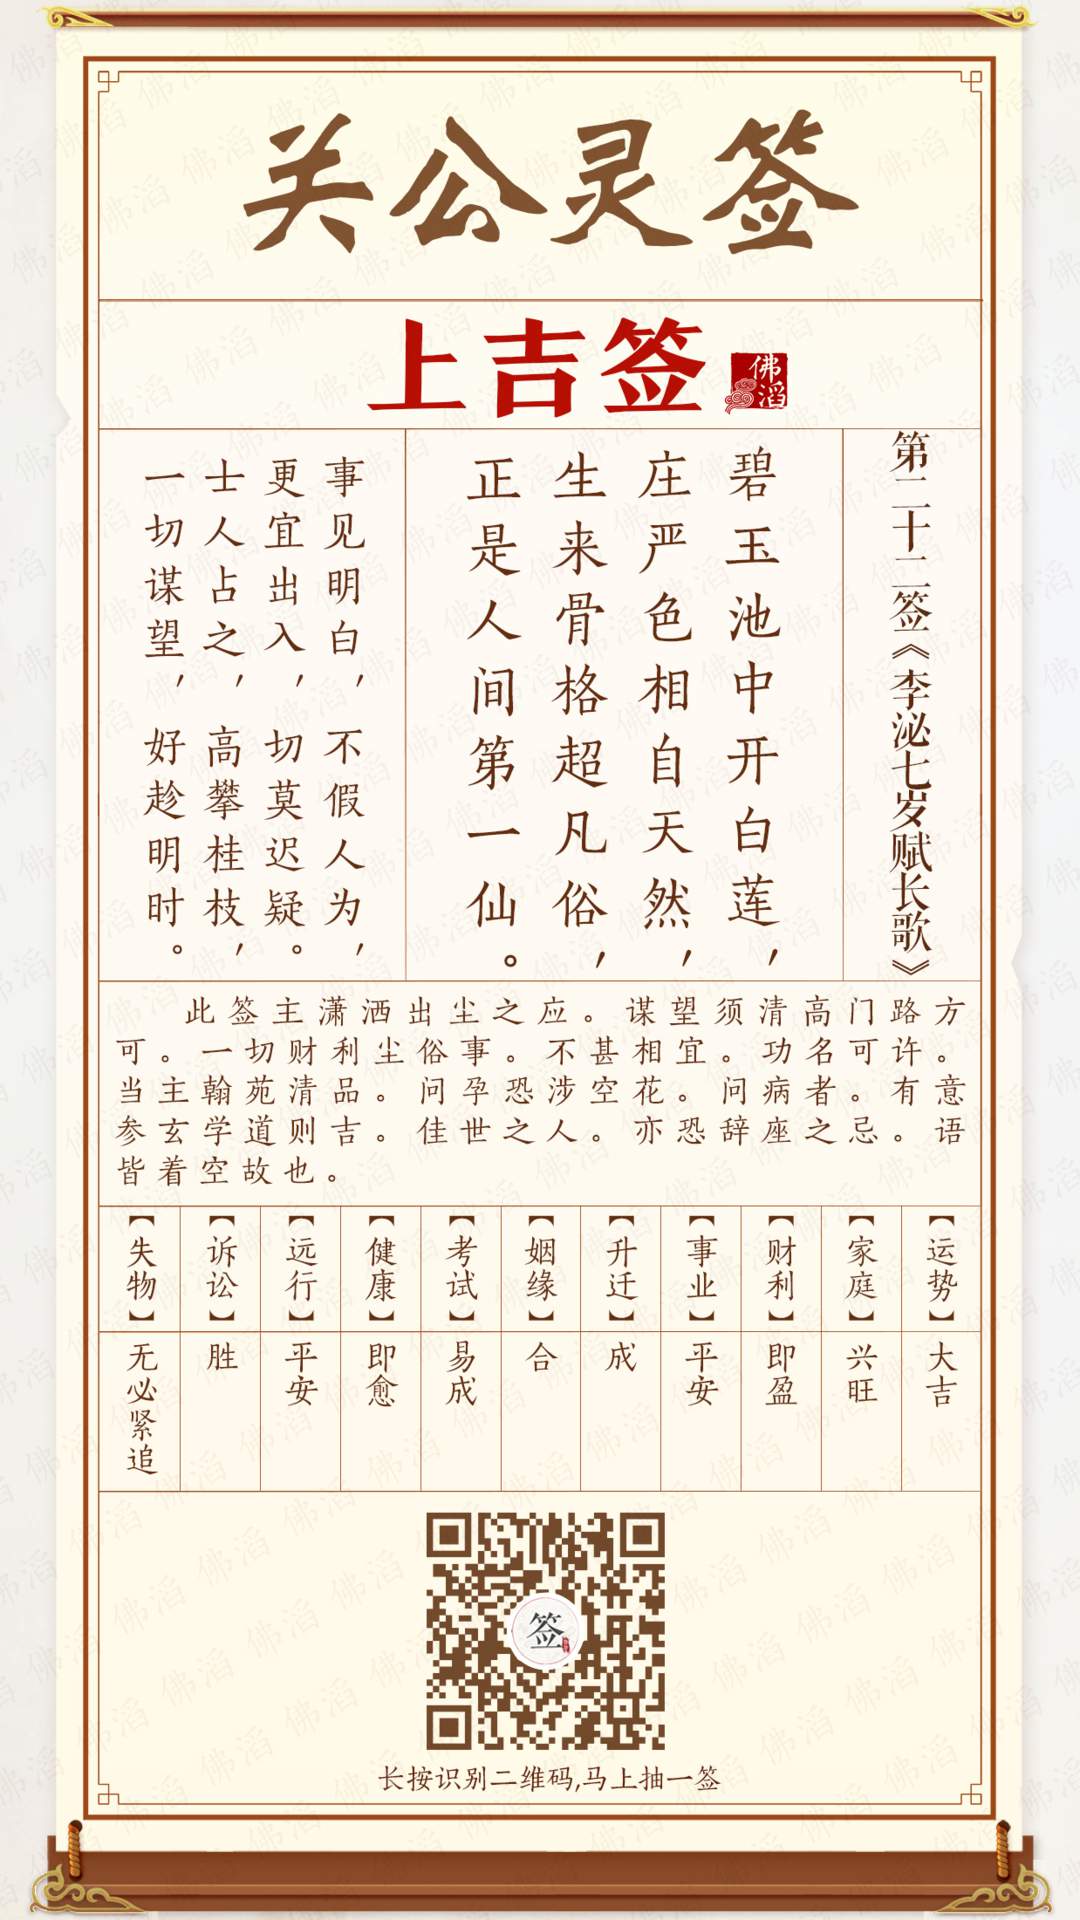 关公灵签
上吉签
佛滔
第二十二签《李泌七岁赋长歌》
碧玉池中开白莲，
庄严色相自天然，
生来骨格超凡俗，
正是人间第一仙。
事见明白，不假人为，
更宜出入，切莫迟疑。
士人占之，高攀桂枝，
一切谋望，好趁明时。
此签主潇洒出尘之应。谋望须清高门路方
可。一切财利尘俗事。不甚相宜。功名可许。
当主翰苑清品。问孕恐涉空花。问病者。有意
参玄学道则吉。佳世之人。亦恐辞座之忌。语
皆着空故也。
【运势】
大吉
【家庭】
兴旺
【财利】
即盈
【事业】
平安
【升迁】
成
【姻缘】
合
【考试】
易成
【健康】
即愈
【远行】
平安
【诉讼】
胜
【失物】
无必紧追
签
长按识别二维码,马上抽一签